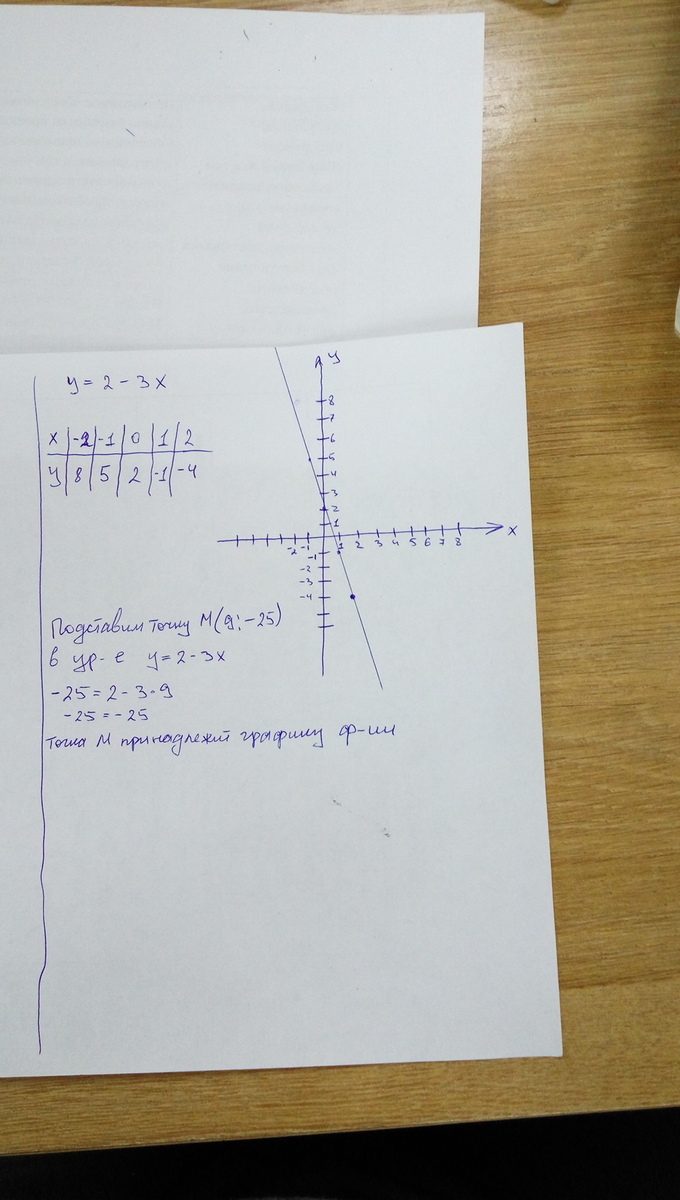 y = 2 - 3x
x | -2 | -1 | 0 | 1 | 2
y | 8 | 5 | 2 | -1 | -4
y
8
7
6
5
4
3
2
1
-2 -1 1 2 3 4 5 6 7 8 x
-1
-2
-3
-4
Подставим точку М(9; -25)
в ур-е y = 2 - 3x
-25 = 2 - 3·9
-25 = -25
точка М принадлежит графику ф-ии